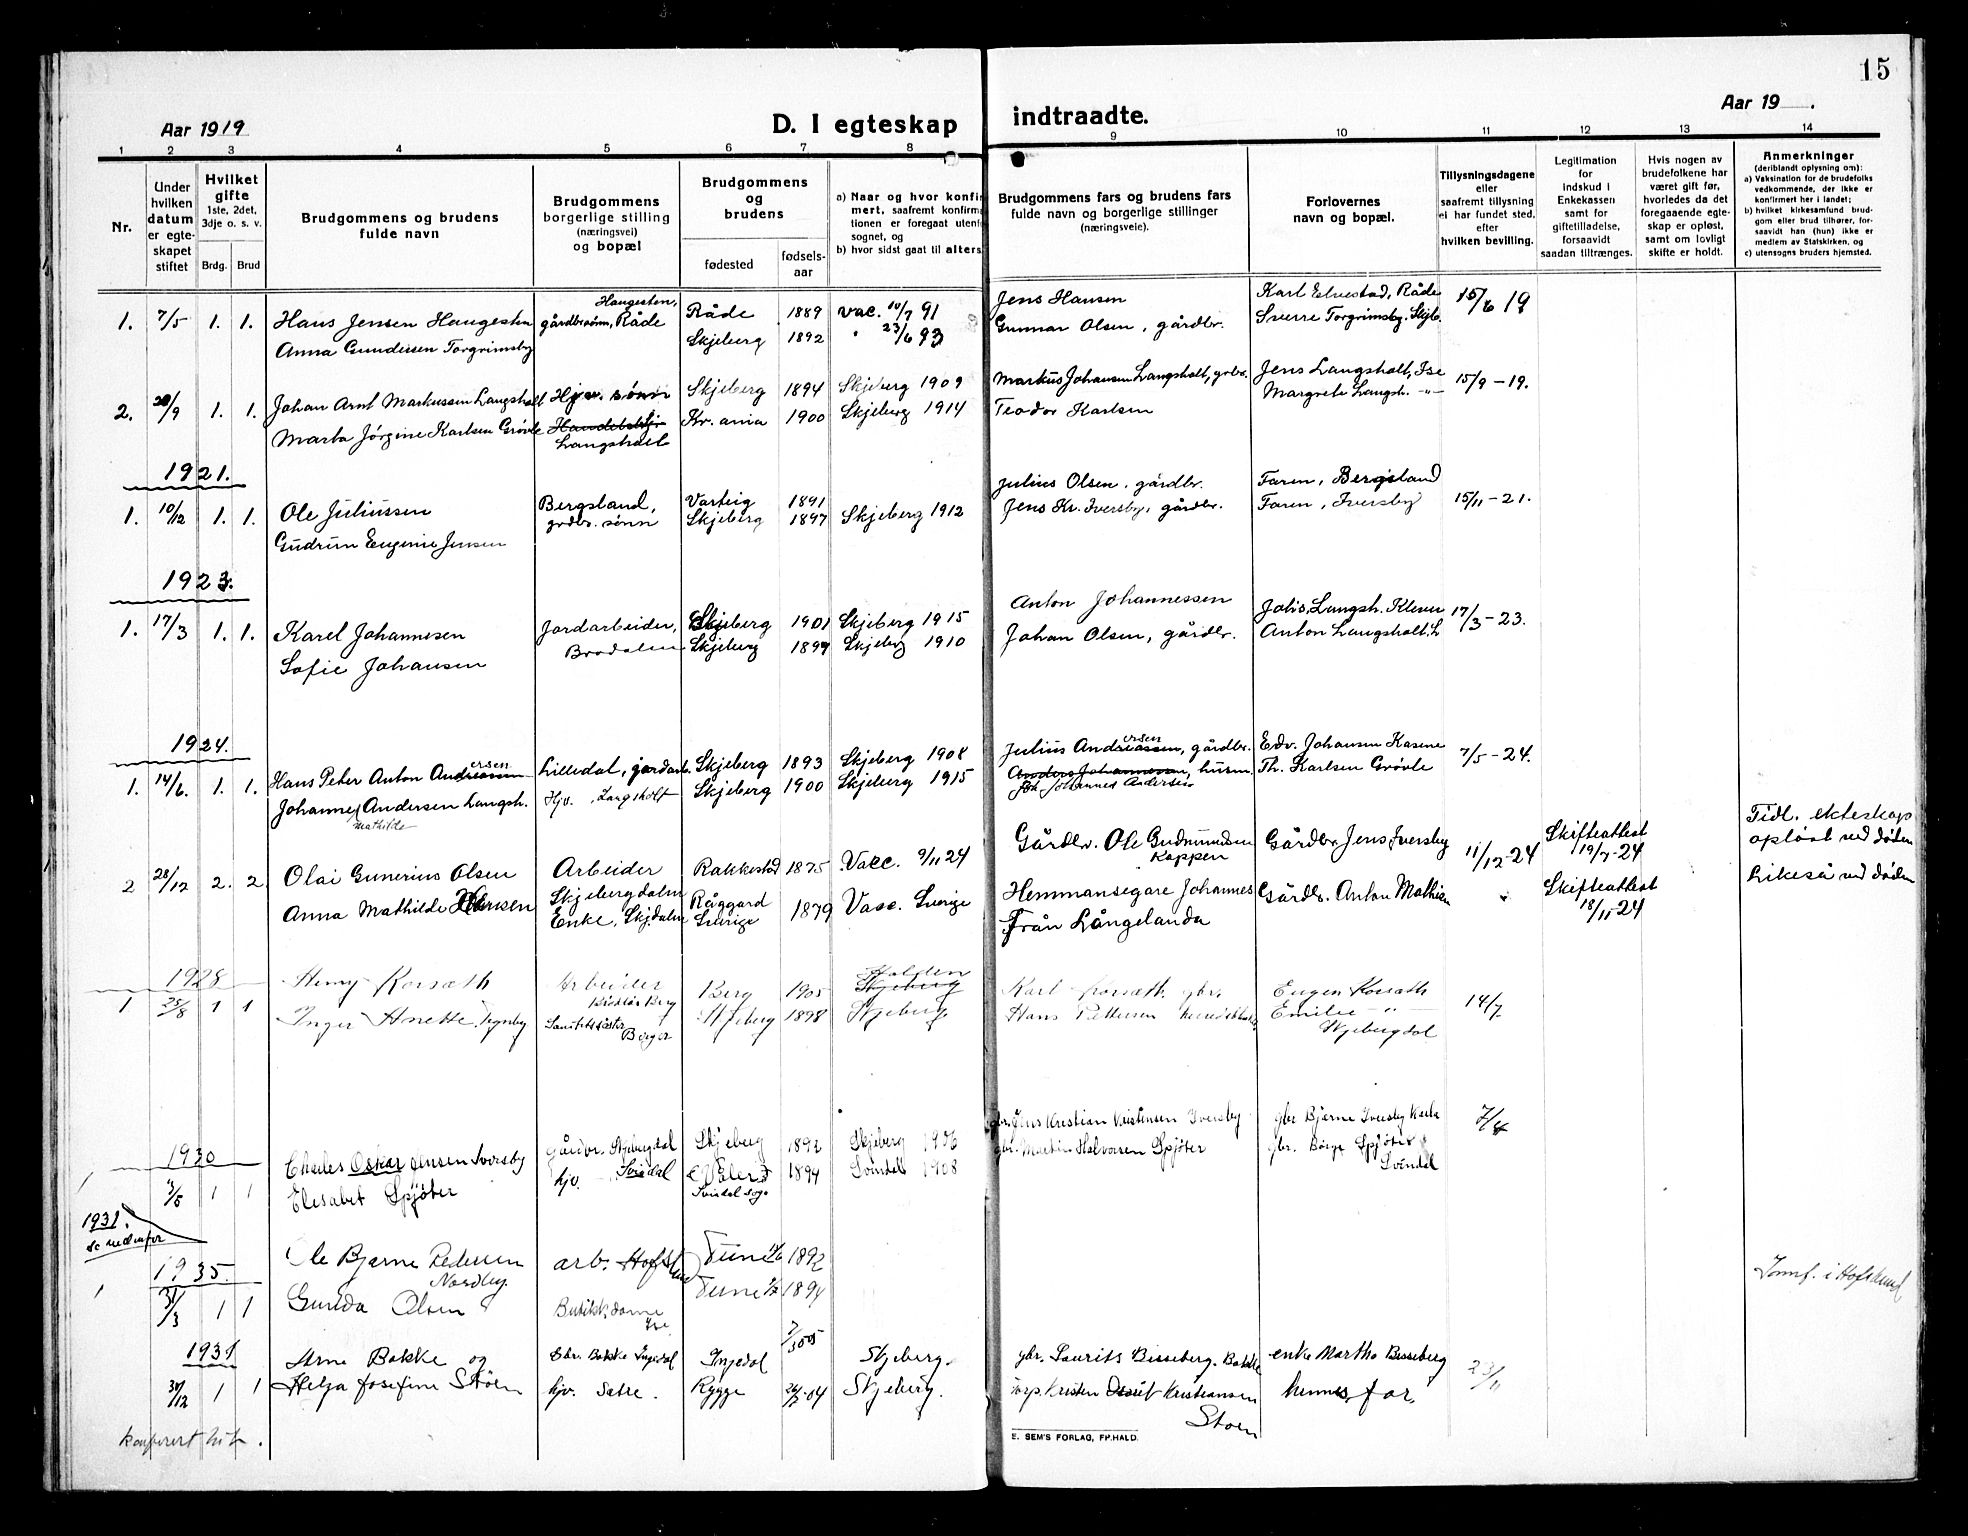 15
Aar 1919
D. I egteskap indtraadte.
Aar 19 .
1 2 3 4 5 6 7 8 9 10 11 12 13 14
Nr.
Under hvilken datum er egteskapet stiftet
Hvilket gifte
1ste, 2det, 3dje o. s. v.
Brdg. Brud
Brudgommens og brudens fulde navn
Brudgommens og brudens borgerlige stilling (næringsvei) og bopæl
Brudgommens og brudens
fødested
fødsels-aar
a) Naar og hvor konfirmert, saafremt konfirmationen er foregaat utenfor sognet, og
b) hvor sidst gaat til alters
Brudgommens fars og brudens fars fulde navn og borgerlige stillinger (næringsveie).
Forlovernes navn og bopæl.
Tillysningsdagene eller saafremt tillysning ei har fundet sted, efter hvilken bevilling.
Legitimation for indskud i Enkekassen samt for giftetilladelse, forsaavidt saadan tiltrænges.
Hvis nogen av brudefolkene har været gift før, hvorledes da det foregaaende egteskap er opløst, samt om lovligt skifte er holdt.
Anmerkninger
(deriblandt oplysning om):
a) Vaksination for de brudefolks vedkommende, der ikke er konfirmert her i landet;
b) hvilket kirkesamfund brudgom eller brud tilhører, forsaavidt han (hun) ikke er medlem av Statskirken, og
c) utensogns bruders hjemsted.
1. 7/5 1. 1. Hans Jensen Haugesten Haugesten, gårdbrsønn, Råde Råde 1889 vac. 10/7 91 Jens Hansen Karl Elvestad, Råde 15/6 19
Anna Gundersen Torgrimsby Skjeberg 1892 " 23/6 93 Gunnar Olsen, gårdbr. Sverre Torgrimsby, Skjb.
2. 20/9 1. 1. Johan Arnt Markussen Langsholt Skjeberg 1894 Skjeberg 1909 Markus Johansen Langsholt, grbr. Jens Langsholt, Ise 15/9 - 19.
Marta Jörgine Karlsen Grövle Langsholt Kr.ania 1900 Skjeberg 1914 Teodor Karlsen Margrete Langsh. -"-
1921.
1. 10/12 1. 1. Ole Juliussen Bergsland, grdbr. sønn Varteig 1891 Julius Olsen, gårdbr. Faren, Bergsland 15/11 - 21.
Gudrun Eugenie Jensen Skjeberg 1897 Skjeberg 1912 Jens Kr. Iversby, gårdbr. Faren, Iversby
1923.
1. 17/3 1. 1. Karel Johannesen Jordarbeider, Brodalen Skjeberg 1901 Skjeberg 1915 Anton Johannessen Johs. Langsh. Kleven 17/3 - 23.
Sofie Johansen Skjeberg 1899 Skjeberg 1910 Johan Olsen, gårdbr. Anton Langsholt, L
1924.
1. 14/6. 1. 1. Hans Peter Anton Andreassen ersen Lilledal, jordarb. Skjeberg 1893 Skjeberg 1908 Julius Andreassen ersen, gårdbr. Edv. Johansen Kasene 7/5 - 24.
Johanne Mathilde Andersen Langsh. Hjv. Langsholt Skjeberg 1900 Skjeberg 1915 Anders Johannessen, husm. Th. Karlsen Grövle
Johannes Andersen
2 28/12 2. 2. Olai Gunerius Olsen Arbeider Skjebergdalen Rakkestad 1875 Vacc. 9/11 24 Gårdbr. Ole Gudmundsen Kappen Gårdbr. Jens Iversby 11/12-24 Skifteattest 19/7-24 Tidl. ekteskap opløst ved døden
Anna Mathilde Hansen Enke, Skj.dalen Råggard Sverige 1879 Vacc. Sverige Hemmansegare Johannes Från Långelanda Gårdb. Anton Mathisen " Skifteattest 18/11-24 Likeså ved døden
1928
1 25/8 1 1 Henry Korsæth Arbeider Berg 1905 Halden Skjeberg Karl Korsæth gbr. Eugen Korsæth 14/7
Inger Anette Skjeberg 1898 Skjeberg Hans Pettersen Emilie -"- Skjebergdal
1930
1 3/5 1 1 Charles Oskar Jensen Iversby gårdbr. Skjebergdal Skjeberg 1892 Skjeberg 1906 gbr. Jens Kristian Kristensen Iversby gbr Bjarne Iversby 7/4
Elisabet Spjöter hjv. Svindal Våler Svindal sogn 1894 Svindal 1908 gbr. Martin Halvorsen Spjöter gbr. Börge Spjöter Svindal
1931. se nedenfor
1935.
1 31/3 1 1 Ole Bjarne Pedersen Nordby. arb. Hofslund Tune 1892 Jomf. i Hofslund
Gunda Olsen Butikkdame Ise Tune 1894
1931
30/12 1 1 Arne Bakke og Gbr. Bakke Ingedal Ingedal 7/3 05 Skjeberg. gbr. Laurits Bisseberg, Bakke enke Martha Bisseberg 23/11
Helga Josefine Stöen hjv. Satre. Rygge 04 Skjeberg. torp. Kristen Kristiansen Stoen hennes far.
konferert hit.
E. SEM'S FORLAG, FR.HALD.